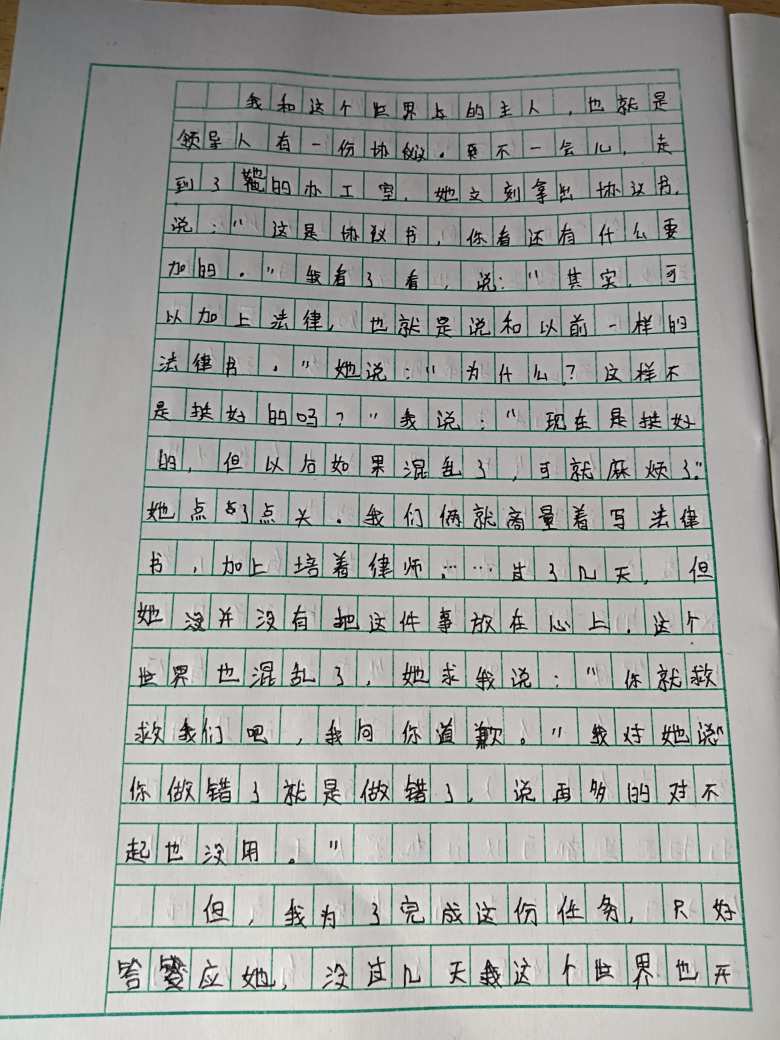 我和这个世界上的主人，也就是
领导人有一份协议。要不一会儿，走
到了她的办工室，她立刻拿出协议书，
说：“这是协议书，你看还有什么要
加的。”我看了看，说：“其实，可
以加上法律，也就是说和以前一样的
法律书。”她说：“为什么？这样不
是挺好的吗？”我说：“现在是挺好
的，但以后如果混乱了，可就麻烦了。”
她点了点头。我们俩就商量着写法律
书，加上培着律师……过了几天，但
她没并没有把这件事放在心上。这个
世界也混乱了，她求我说：“你就救
救我们吧，我向你道歉。”我对她说“
你做错了就是做错了，说再多的对不
起也没用。”
但，我为了完成这份任务，只好
答应她，没过几天我这个世界也开